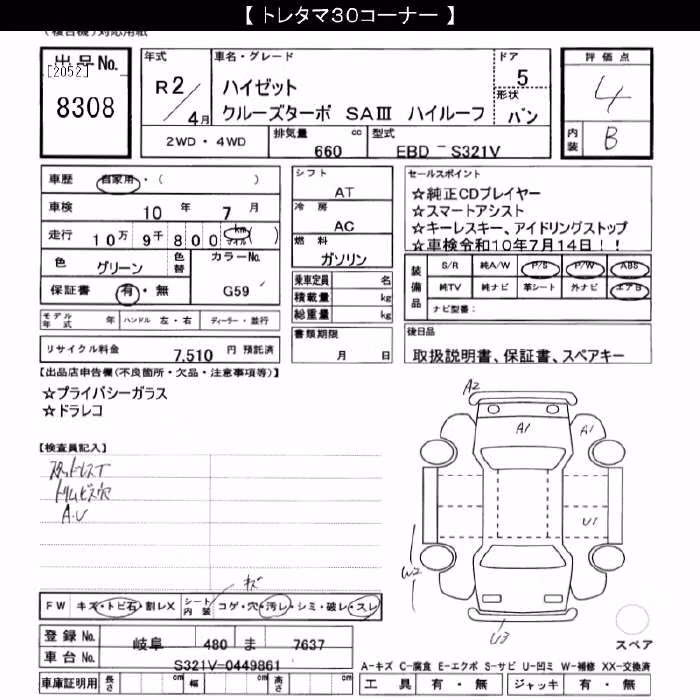 【 トレタマ30コーナー 】
(複合機)対応用紙
出品No.
[2052]
8308
年式
R 2/4月
車名・グレード
ハイゼット
クルーズターボ SAⅢ ハイルーフ
ドア
5
形状
バン
評価点
4
内装
B
2WD・4WD
排気量 660 cc
型式 EBD - S321V
車歴 自家用・( )
車検 10 年 7 月
走行 10万 9千 8 0 0 km マイル ( )
色 グリーン
色替
カラーNo.
G59
保証書 有・無
シフト
AT
冷房
AC
燃料
ガソリン
乗車定員 名
積載量 kg
総重量 kg
セールスポイント
☆純正CDプレイヤー
☆スマートアシスト
☆キーレスキー、アイドリングストップ
☆車検令和10年7月14日！！
装備品
S/R 純A/W P/S P/W ABS
純TV 純ナビ 革シート 外ナビ エアB
ナビ型番：
モデル年式 年 ハンドル 左・右 ディーラー・並行
書類期限
月 日
後日品
取扱説明書、保証書、スペアキー
リサイクル料金 7,510 円 預託済
【出品店申告欄(不良箇所・欠品・注意事項等)】
☆プライバシーガラス
☆ドラレコ
【検査員記入】
トリムビス穴
A.U
A2
A1
A1
U1
W2
U3
キズ
FW キズ・トビ石・割レX
シート内装 コゲ・穴・汚レ・シミ・破レ・スレ
登録No. 岐阜 480 ま 7637
車台No. S321V-0449861
スペア
A-キズ C-腐食 E-エクボ S-サビ U-凹ミ W-補修 XX-交換済
車庫証明用 長さ cm 幅 cm 高さ cm
工具 有・無 ジャッキ 有・無